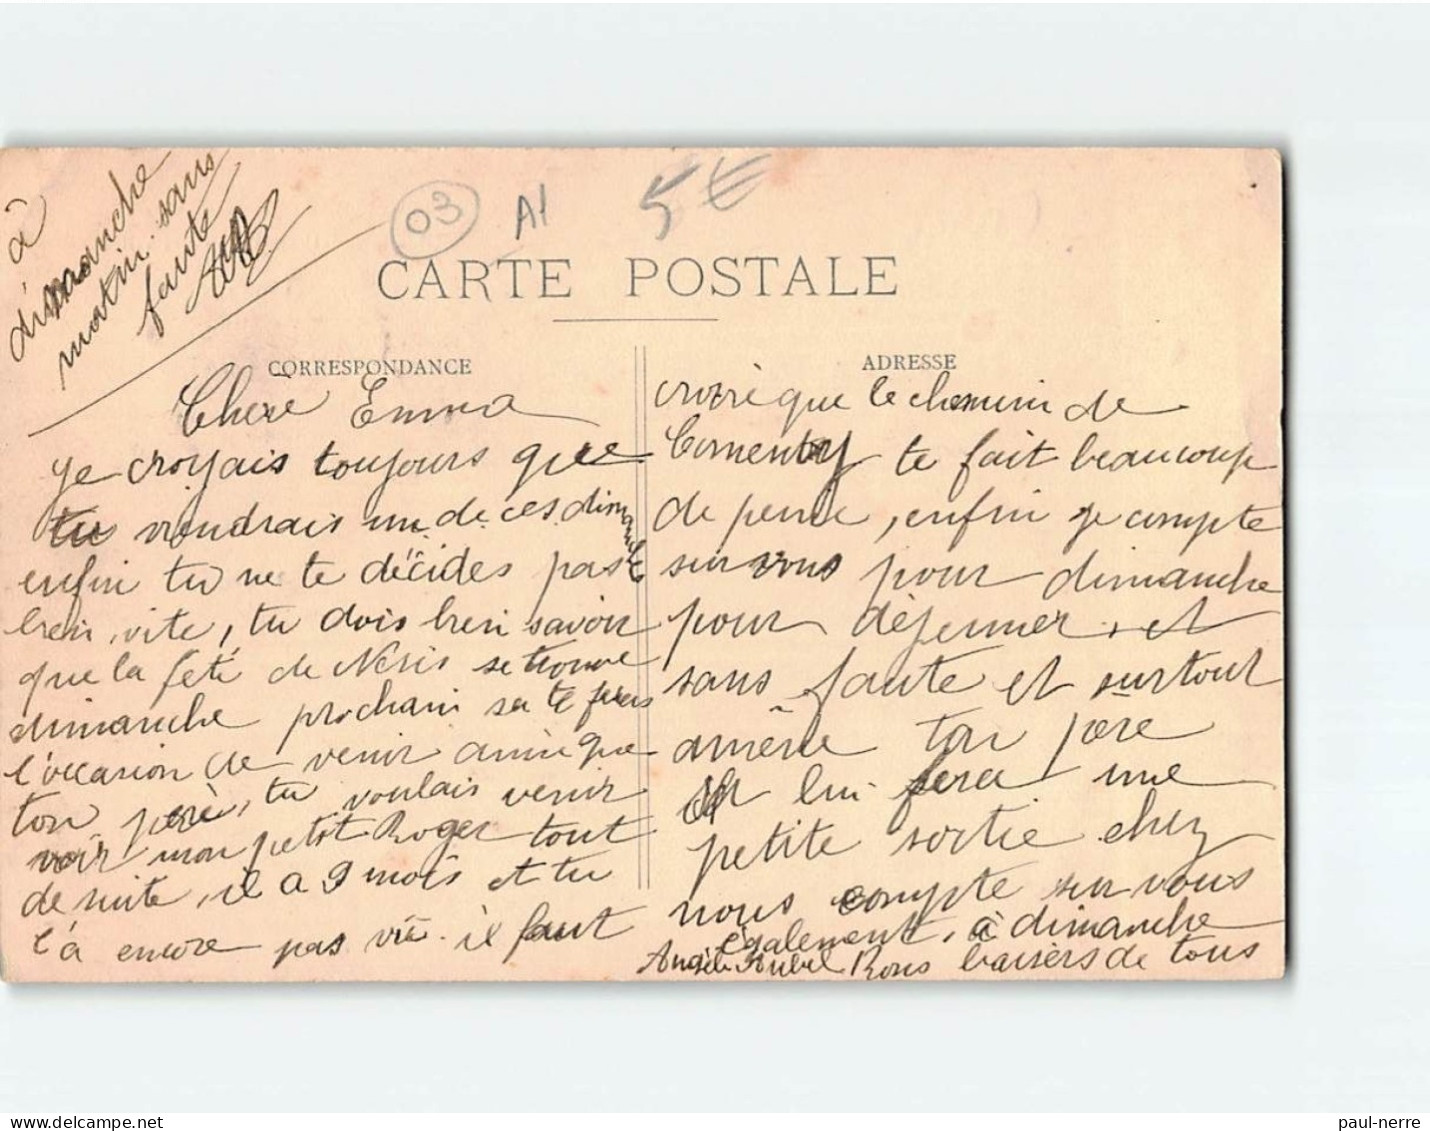 à
dimanche
matin sans
faute
03
A1
5€
CARTE POSTALE
CORRESPONDANCE
Chere Emma
je croyais toujours que
tu viendrais un de ces dimanche
enfin tu ne te décides pas
bien vite, tu dois bien savoir
que la fete de Neris se trouve
dimanche prochain sa te feras
l'occasion de venir ainsi que
ton père, tu voulais venir
voir mon petit Roger tout
de suite, il a 9 mois et tu
l'a encore pas vu. il faut
ADRESSE
croire que le chemin de
Comentry te fait beaucoup
de peine, enfin je compte
sur vous pour dimanche
pour déjeuner et
sans faute et surtout
amene ton père
lui fera une
petite sortie chez
nous compte sur vous
également, à dimanche
Bons baisers de tous
paul-nerre